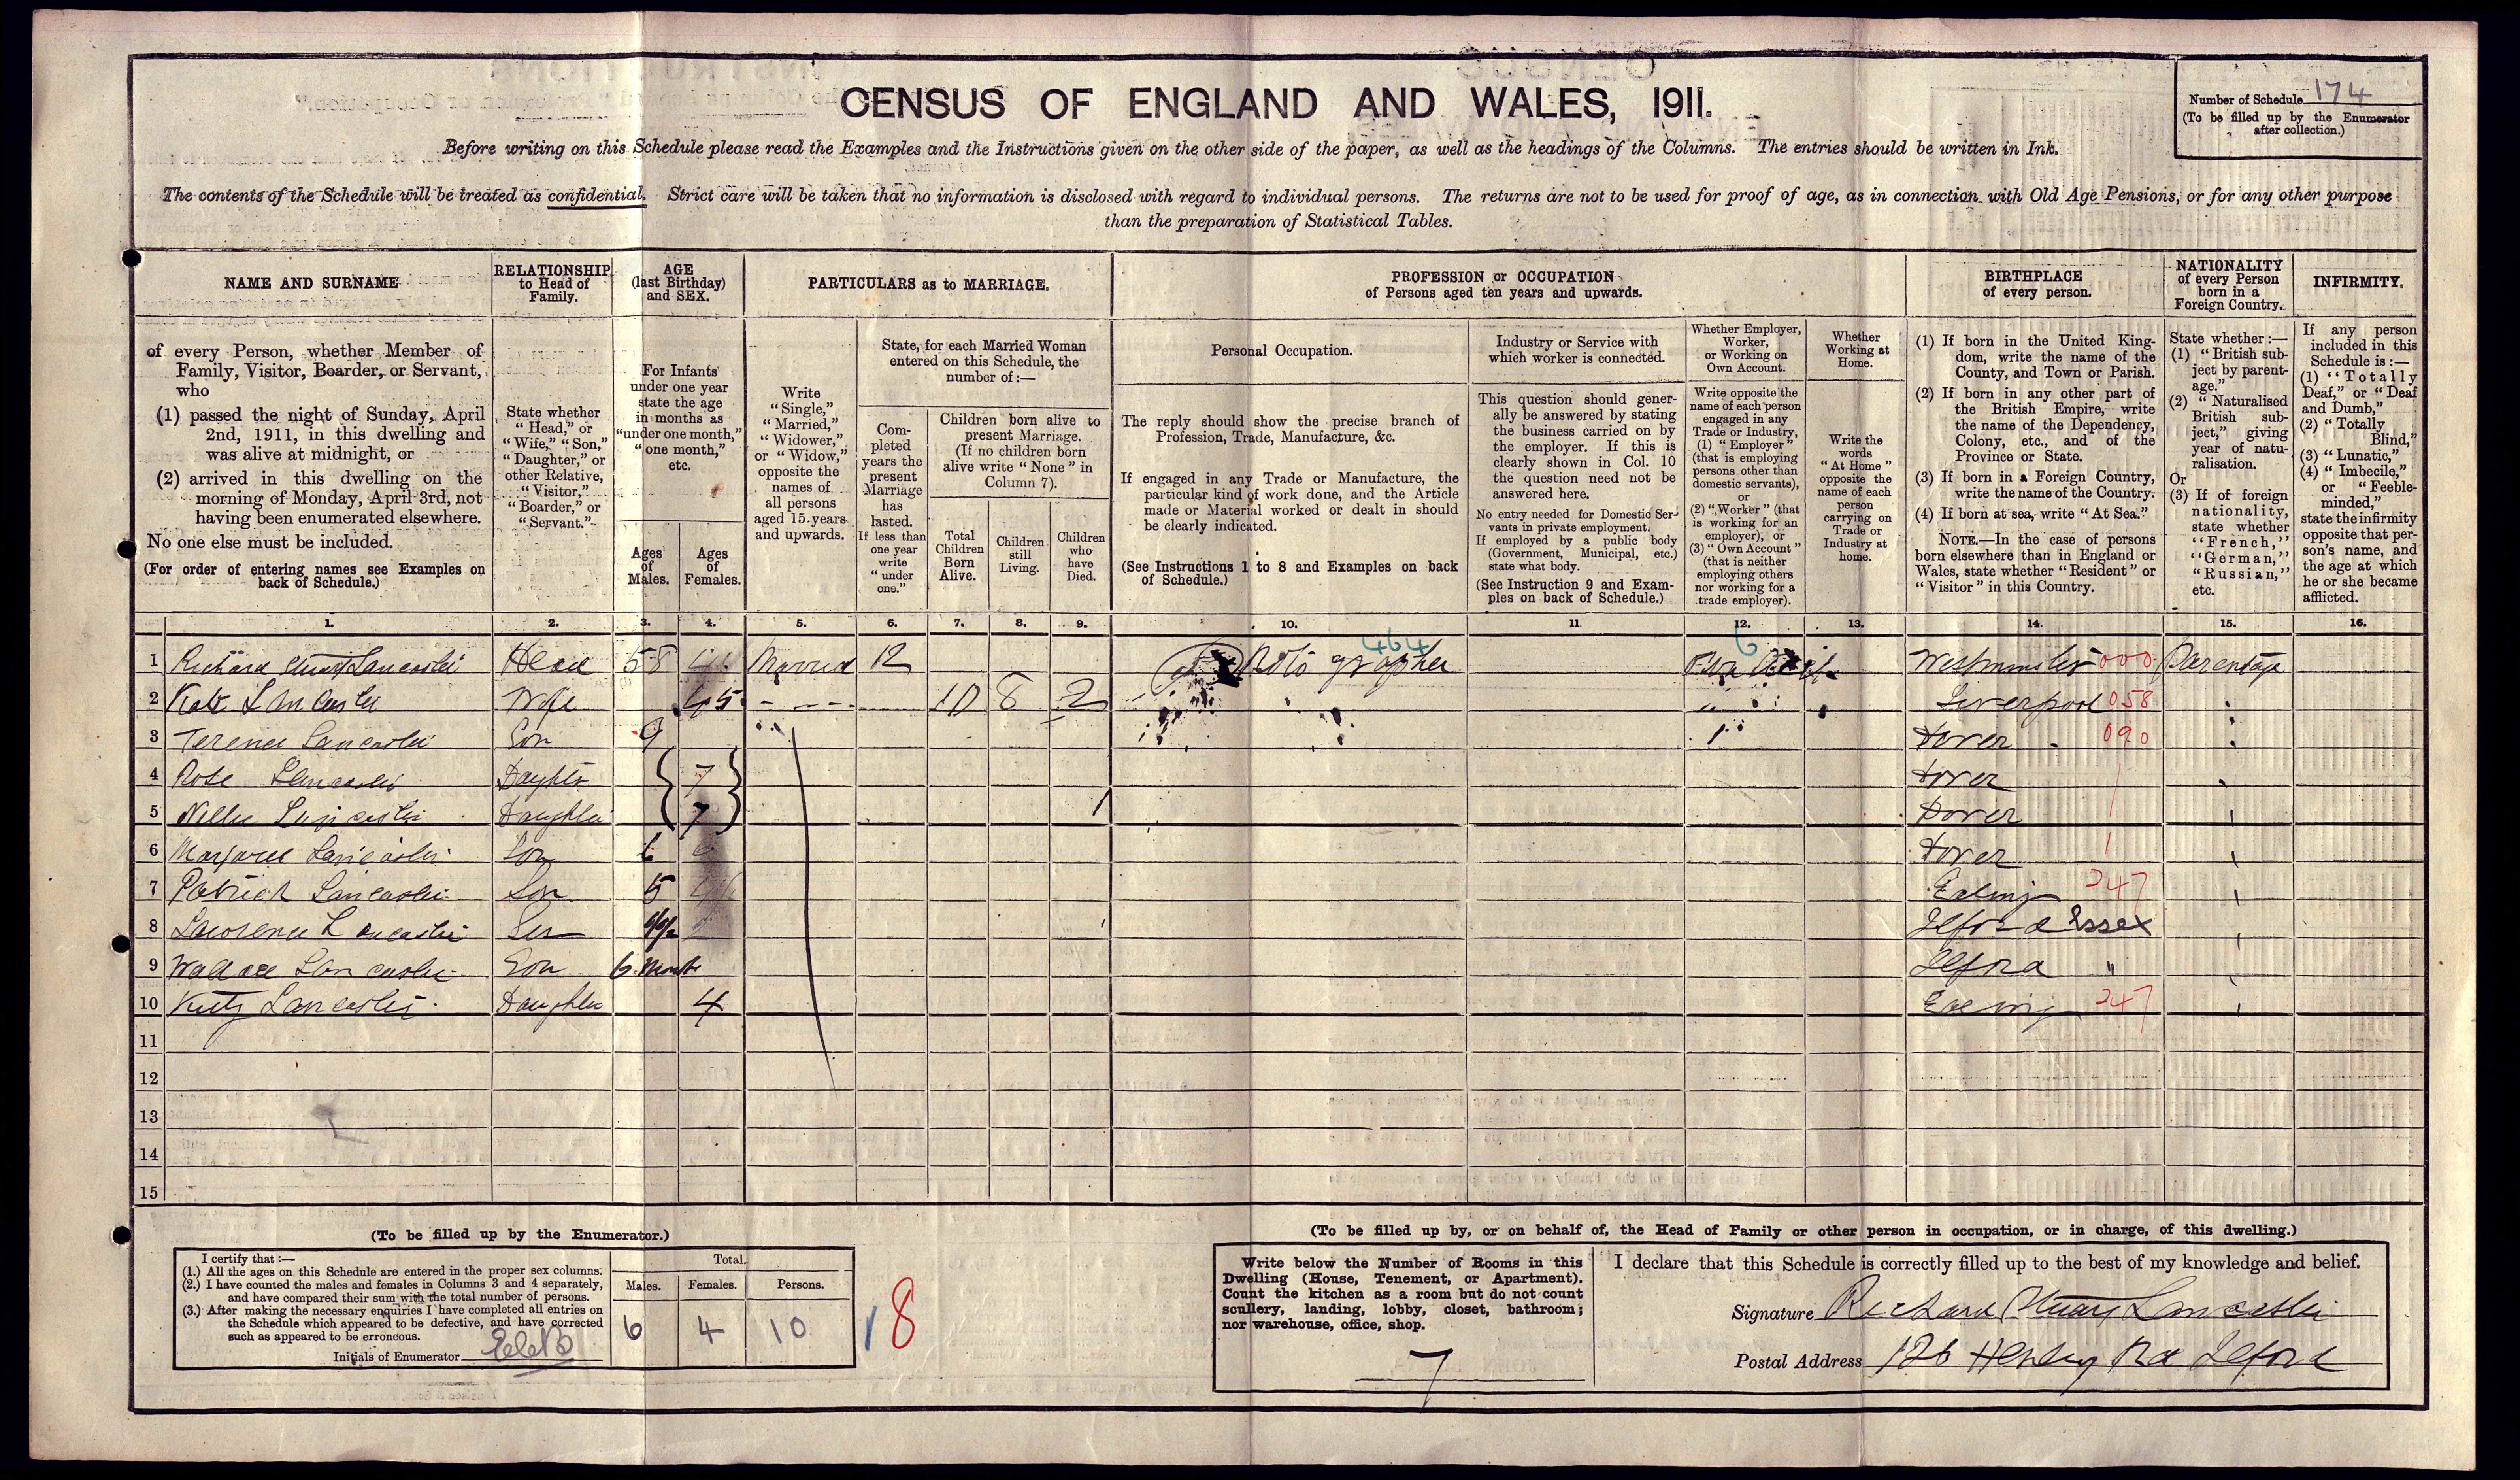 CENSUS OF ENGLAND AND WALES, 1911.
Number of Schedule 174
(To be filled up by the Enumerator after collection.)
Before writing on this Schedule please read the Examples and the Instructions given on the other side of the paper, as well as the headings of the Columns. The entries should be written in Ink.
The contents of the Schedule will be treated as confidential. Strict care will be taken that no information is disclosed with regard to individual persons. The returns are not to be used for proof of age, as in connection with Old Age Pensions, or for any other purpose
than the preparation of Statistical Tables.
NAME AND SURNAME
of every Person, whether Member of
Family, Visitor, Boarder, or Servant,
who
(1) passed the night of Sunday, April
2nd, 1911, in this dwelling and
was alive at midnight, or
(2) arrived in this dwelling on the
morning of Monday, April 3rd, not
having been enumerated elsewhere.
No one else must be included.
(For order of entering names see Examples on
back of Schedule.)
RELATIONSHIP
to Head of
Family.
State whether
"Head," or
"Wife," "Son,"
"Daughter," or
other Relative,
"Visitor,"
"Boarder," or
"Servant."
AGE
(last Birthday)
and SEX.
For Infants
under one year
state the age
in months as
"under one month,"
"one month,"
etc.
Ages
of
Males.
Ages
of
Females.
PARTICULARS as to MARRIAGE.
Write
"Single,"
"Married,"
"Widower,"
or "Widow,"
opposite the
names of
all persons
aged 15 years
and upwards.
State, for each Married Woman
entered on this Schedule, the
number of:—
Com-
pleted
years the
present
Marriage
has
lasted.
If less than
one year
write
"under
one."
Children born alive to
present Marriage.
(If no children born
alive write "None" in
Column 7).
Total
Children
Born
Alive.
Children
still
Living.
Children
who
have
Died.
PROFESSION or OCCUPATION
of Persons aged ten years and upwards.
Personal Occupation.
The reply should show the precise branch of
Profession, Trade, Manufacture, &c.
If engaged in any Trade or Manufacture, the
particular kind of work done, and the Article
made or Material worked or dealt in should
be clearly indicated.
(See Instructions 1 to 8 and Examples on back
of Schedule.)
Industry or Service with
which worker is connected.
This question should gener-
ally be answered by stating
the business carried on by
the employer. If this is
clearly shown in Col. 10
the question need not be
answered here.
No entry needed for Domestic Ser-
vants in private employment.
If employed by a public body
(Government, Municipal, etc.)
state what body.
(See Instruction 9 and Exam-
ples on back of Schedule.)
Whether Employer,
Worker,
or Working on
Own Account.
Write opposite the
name of each person
engaged in any
Trade or Industry,
(1) "Employer"
(that is employing
persons other than
domestic servants),
or
(2) "Worker" (that
is working for an
employer), or
(3) "Own Account"
(that is neither
employing others
nor working for a
trade employer).
Whether
Working at
Home.
Write the
words
"At Home"
opposite the
name of each
person
carrying on
Trade or
Industry at
home.
BIRTHPLACE
of every person.
(1) If born in the United King-
dom, write the name of the
County, and Town or Parish.
(2) If born in any other part of
the British Empire, write
the name of the Dependency,
Colony, etc., and of the
Province or State.
(3) If born in a Foreign Country,
write the name of the Country.
(4) If born at sea, write "At Sea."
NOTE.—In the case of persons
born elsewhere than in England or
Wales, state whether "Resident" or
"Visitor" in this Country.
NATIONALITY
of every Person
born in a
Foreign Country.
State whether:—
(1) "British sub-
ject by parent-
age."
(2) "Naturalised
British sub-
ject," giving
year of natu-
ralisation.
Or
(3) If of foreign
nationality,
state whether
"French,"
"German,"
"Russian,"
etc.
INFIRMITY.
If any person
included in this
Schedule is:—
(1) "Totally
Deaf," or "Deaf
and Dumb,"
(2) "Totally
Blind,"
(3) "Lunatic,"
(4) "Imbecile,"
or "Feeble-
minded,"
state the infirmity
opposite that per-
son's name, and
the age at which
he or she became
afflicted.
1. 2. 3. 4. 5. 6. 7. 8. 9. 10. 11 12. 13. 14. 15. 16.
1 Richard Lancaster Head 58 Married 12 464 6 Westminster 000 Parentage
2 Kate Lancaster Wife 45 10 8 2 Liverpool 058
3 Terence Lancaster Son 9 Dover 090
4 Rose Lancaster Daughter 7 Dover
5 Nellie Lancaster Daughter 7 Dover
6 Lancaster Son 6 Dover
7 Patrick Lancaster Son 5 Ealing 247
8 Lawrence Lancaster Son Ilford Essex
9 Wallace Lancaster Son 6 Months Ilford "
10 Kitty Lancaster Daughter 4 Ealing 247
11
12
13
14
15
(To be filled up by the Enumerator.)
I certify that:—
(1.) All the ages on this Schedule are entered in the proper sex columns.
(2.) I have counted the males and females in Columns 3 and 4 separately,
and have compared their sum with the total number of persons.
(3.) After making the necessary enquiries I have completed all entries on
the Schedule which appeared to be defective, and have corrected
such as appeared to be erroneous.
Initials of Enumerator
Total.
Males. Females. Persons.
6 4 10
18
(To be filled up by, or on behalf of, the Head of Family or other person in occupation, or in charge, of this dwelling.)
Write below the Number of Rooms in this
Dwelling (House, Tenement, or Apartment).
Count the kitchen as a room but do not count
scullery, landing, lobby, closet, bathroom;
nor warehouse, office, shop.
7
I declare that this Schedule is correctly filled up to the best of my knowledge and belief.
Signature Richard Lancaster
Postal Address 126 Henley Rd Ilford